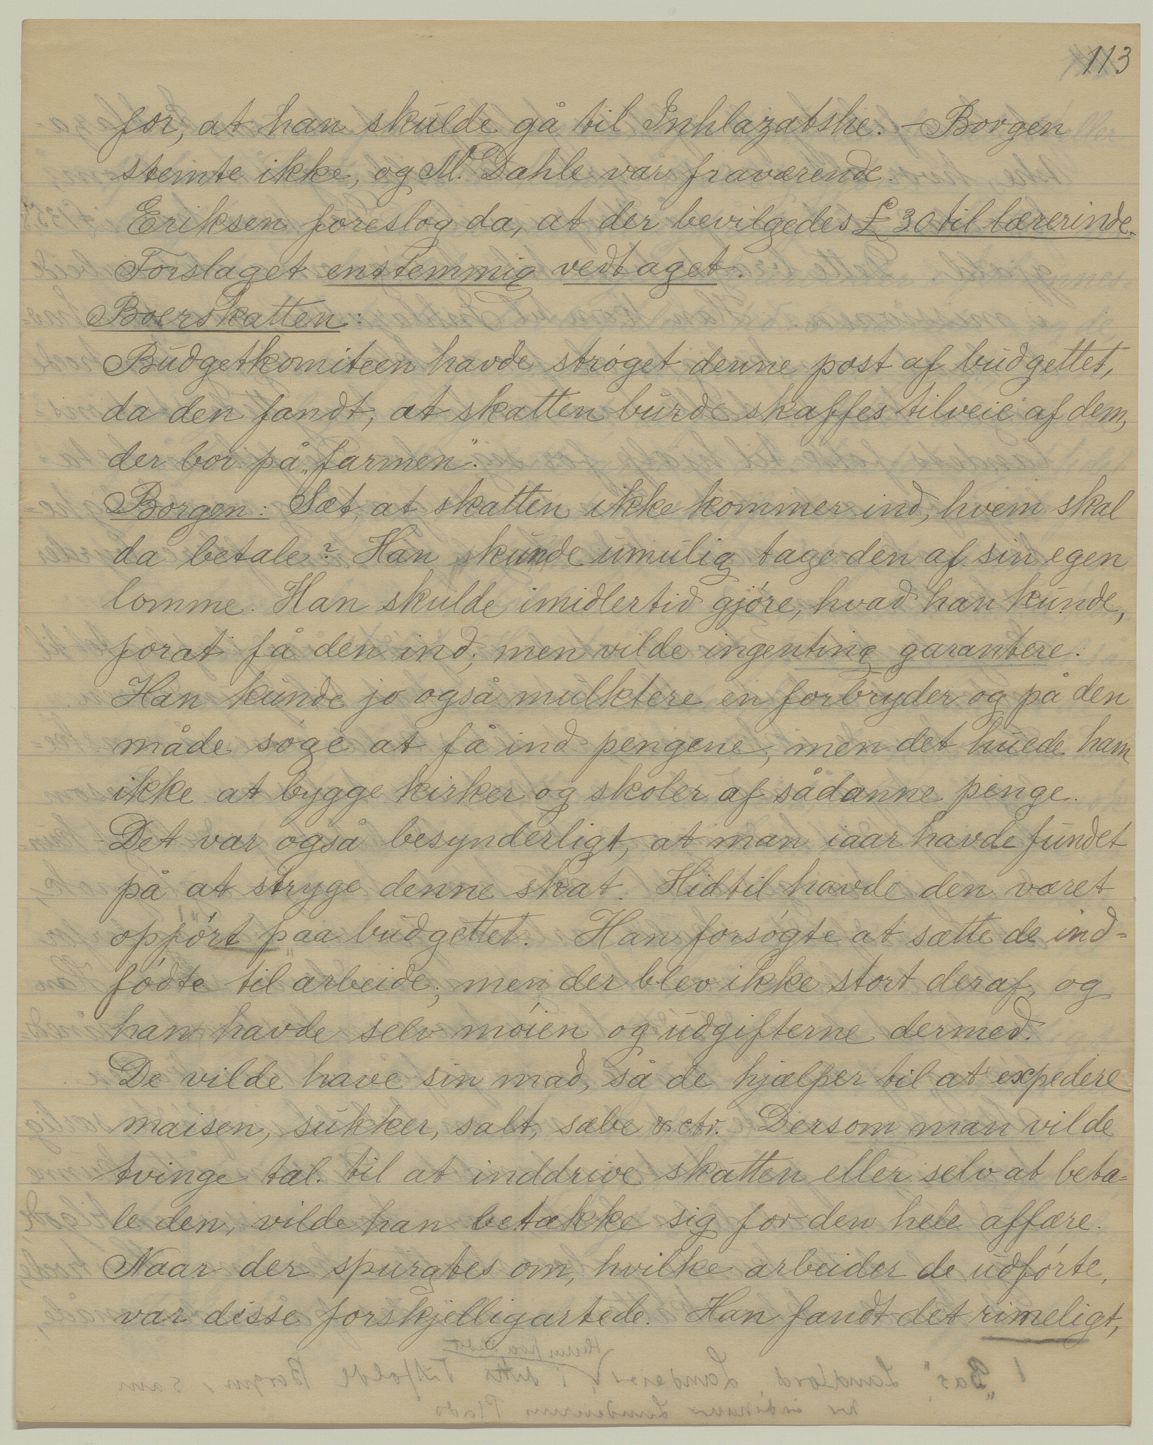 113
for, at han skulde gå til Inhlazatshe. – Borgen
stemte ikke, og M. Dahle var fraværende.
Eriksen foreslog da, at der bevilgedes £30 til lærerinde.
Forslaget enstemmig vedtaget.
Boerskatten:
Budgetkomiteen havde strøget denne post af budgettet,
da den fandt, at skatten burde skaffes tilveie af dem,
der bor på "farmen".
Borgen: Sæt, at skatten ikke kommer ind, hvem skal
da betale? Han kunde umulig tage den af sin egen
lomme. Han skulde imidlertid gjøre, hvad han kunde,
forat få den ind, men vilde ingenting garantere.
Han kunde jo også mulktere en forbryder og på den
måde søge at få ind pengene, men det huede ham
ikke at bygge kirker og skoler af sådanne penge.
Det var også besynderligt, at man iaar havde fundet
på at stryge denne skat. Hidtil havde den været
opført paa budgettet. Han forsøgte at sætte de ind-
fødte til arbeide, men der blev ikke stort deraf, og
han havde selv møien og udgifterne dermed.
De vilde have sin mad, så de hjælper til at expedere
maisen, sukker, salt, sæbe &ctr. Dersom man vilde
tvinge tal. til at inddrive skatten eller selv at beta-
le den, vilde han betakke sig for den hele affære.
Naar der spurgtes om, hvilke arbeider de udførte,
var disse forskjelligartede. Han fandt det rimeligt,